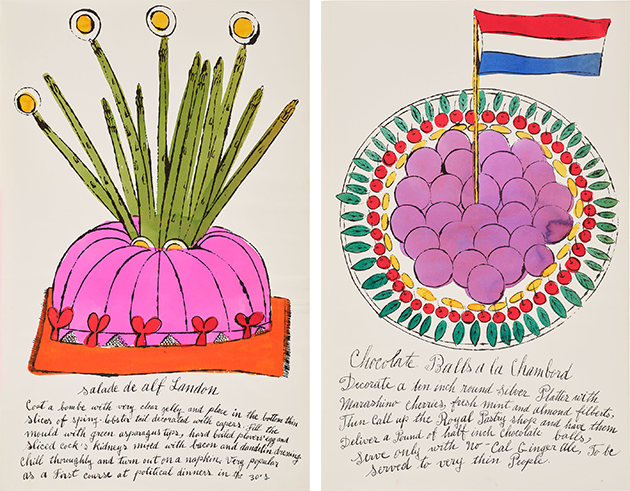 salade de alf Landon
Coat a bombe with very clear jelly and place in the bottom thin
slices of spiny-lobster tail decorated with capers. fill the
mould with green asparagus tips, hard boiled plovers' egg and
sliced cock's Kidneys mixed with bacon and dandelion dressing.
Chill thoroughly and turn out on a napkin. very popular
as a First course at political dinners in the 30's
Chocolate Balls a la Chambord
Decorate a ten inch round silver Platter with
Marashino cherries, fresh mint and almond filberts.
Then Call up the Royal Pastry shop and have them
Deliver a Pound of half inch Chocolate balls,
Serve only with No-Cal Gingerale, To be
served to very thin People.